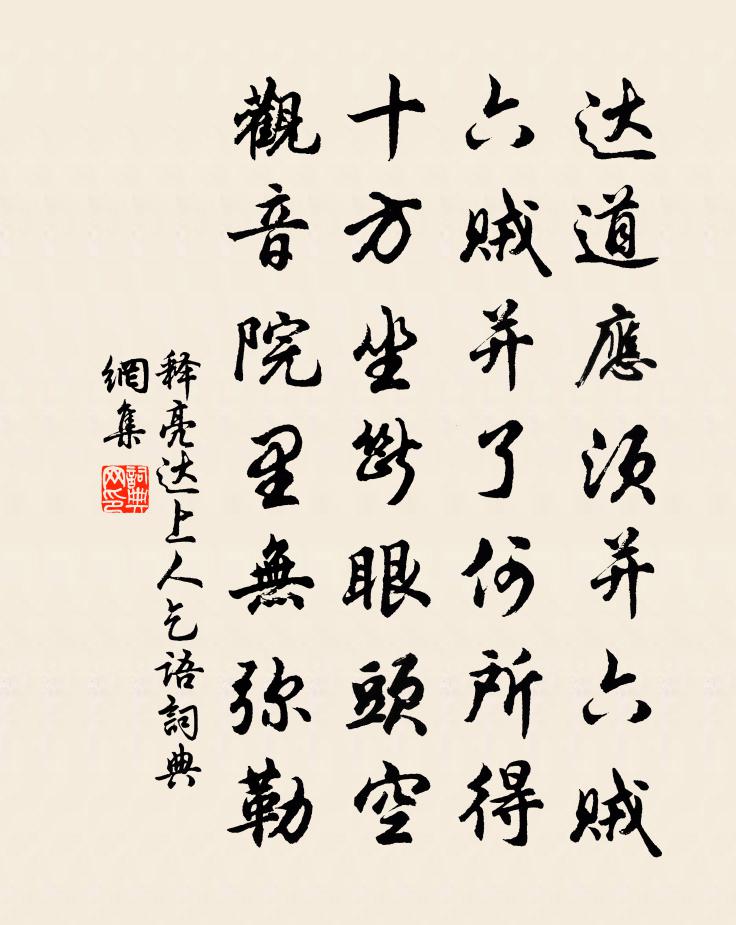 达道應须并六贼
六贼并了何所得
十方坐斷眼頭空
觀音院里無弥勒
释亮达上人乞语詞典
網集
詞典网印